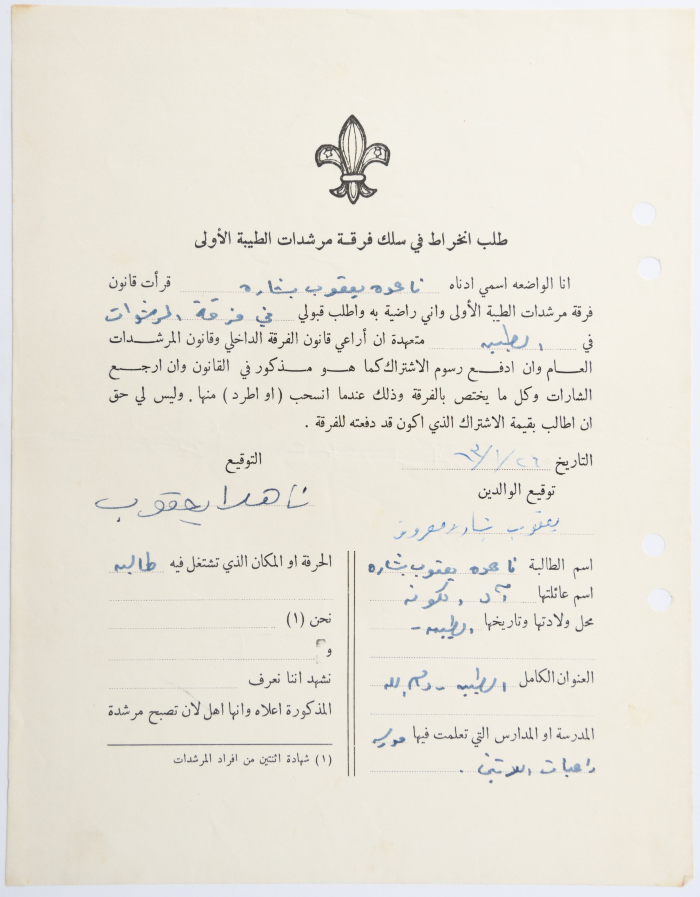 طلب انخراط في سلك فرقة مرشدات الطيبة الأولى
انا الواضعه اسمي ادناه ناهده يعقوب بشاره قرأت قانون
فرقة مرشدات الطيبة الأولى واني راضية به واطلب قبولي في فرقة المرشدات
في الطيبه متعهدة ان أراعي قانون الفرقة الداخلي وقانون المرشدات
العام وان ادفع رسوم الاشتراك كما هو مذكور في القانون وان ارجع
الشارات وكل ما يختص بالفرقة وذلك عندما انسحب (او اطرد) منها. وليس لي حق
ان اطالب بقيمة الاشتراك الذي اكون قد دفعته للفرقة.
التاريخ ٢٦/١/٦٣
التوقيع
توقيع الوالدين
ناهدة يعقوب
يعقوب بشاره
اسم الطالبة ناهده يعقوب بشاره
اسم عائلتها
محل ولادتها وتاريخها الطيبه -
العنوان الكامل الطيبه - رام الله
المدرسة او المدارس التي تعلمت فيها مدرسه
راهبات اللاتين .
الحرفة او المكان الذي تشتغل فيه طالبه
نحن (١)
و
نشهد اننا نعرف
المذكورة اعلاه وانها اهل لان تصبح مرشدة
(١) شهادة اثنتين من افراد المرشدات